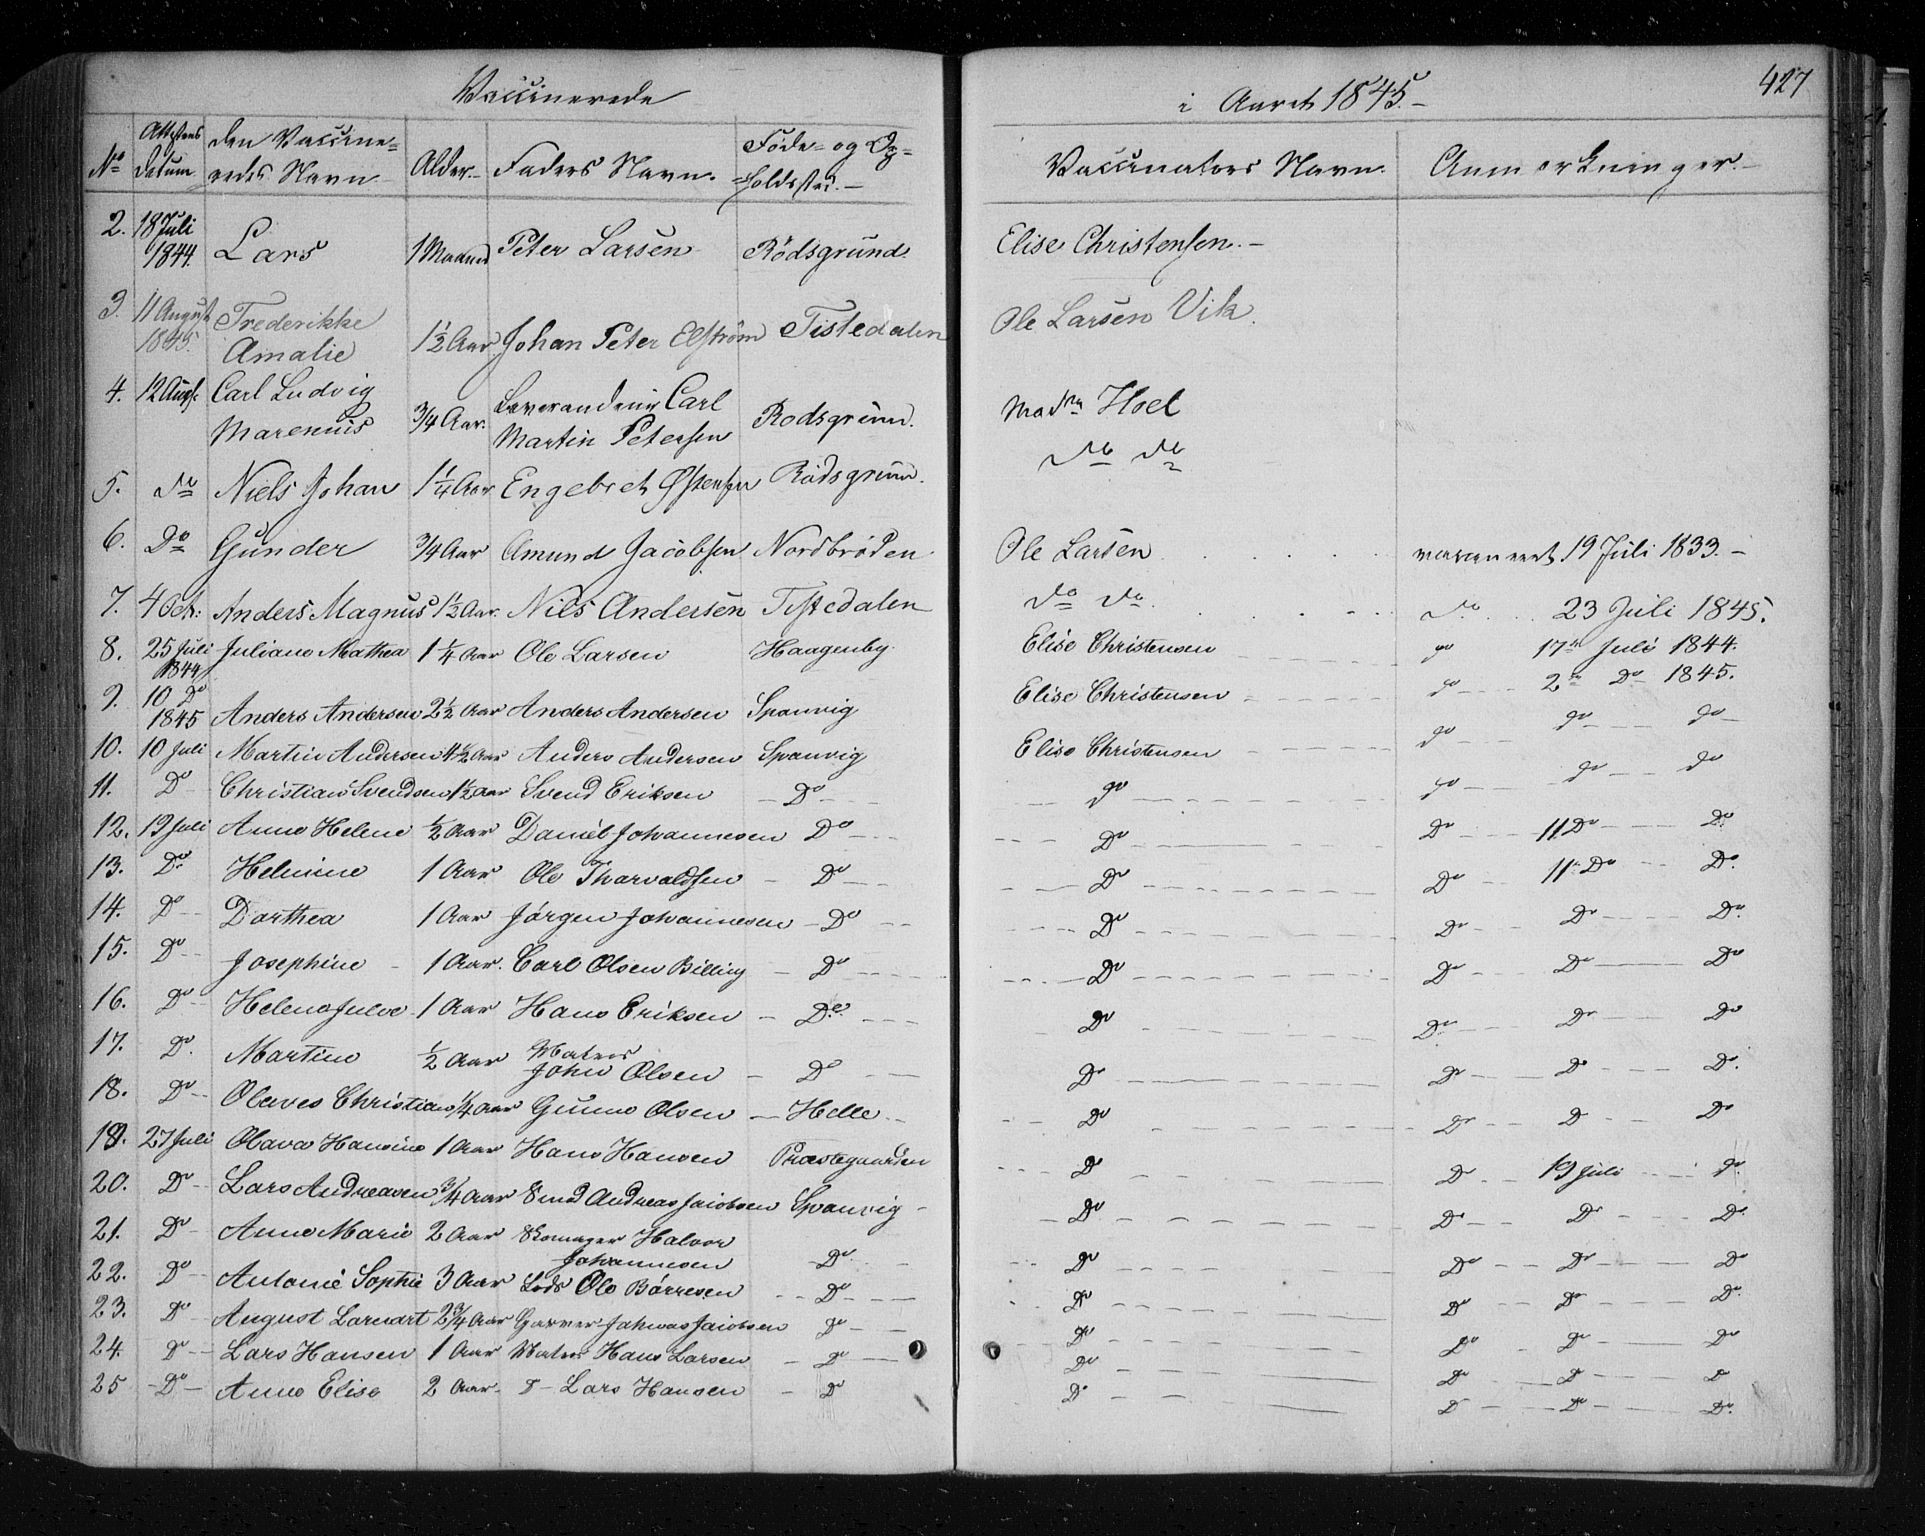 Vaccinerede i Aaret 1845.- 427
No Attestens Datum den Vaccineredes Navn Alder.- Faders Navn. Føde- og Opholdssted.- Vaccinators Navn. Anmærkninger.-
2. 18 Juli 1844. Lars 1 Maaned Peter Larsen Rødsgrund. Elise Christensen.-
3. 11 August 1845. Frederikke Amalie 1½ Aar Johan Peter Elstrøm Tistedalen Ole Larsen Vik.
4. 12 Augs. Carl Ludvig Marenius ¾ Aar. Carl Martin Petersen Rødsgrund. Madm Hoel
5. do Niels Johan 1¼ Aar Engebret Østensen Rødsgrund. do do
6. Do Gunder ¾ Aar Amund Jacobsen Nordbrøden Ole Larsen 19 Juli 1833.-
7. 4 Oct: Anders Magnus 1½ Aar. Nils Andersen Tistedalen do do. do 23 Juli 1845.
8. 25 Juli 1844 Juliane Mathea 1¼ Aar Ole Larsen Haagenby Elise Christensen do 17de Juli 1844.
9. 10 Do 1845 Anders Andersen 2½ Aar Anders Andersen Sponvig Elise Christensen do 2de Do 1845.
10. 10 Juli Martin Andersen 4½ Aar Anders Andersen Sponvig Elise Christensen do do do
11. Do Christian Svendsen 1½ Aar Svend Eriksen Do do do do do
12. 19 Juli Anne Helene ½ Aar Daniel Johannesen Do Do Do 11 Do Do
13. Do Helmine 1 Aar Ole Thorvaldsen Do Do Do 11 Do Do
14. Do Dorthea 1 Aar Jørgen Johannesen Do Do Do Do Do
15. Do Josephine 1 Aar. Carl Olsen Billing Do Do Do Do Do
16. Do Helene Julie 1 Aar Hans Eriksen Do Do Do Do Do
17. Do. Martine ½ Aar Matros John Olsen Do Do Do Do Do.
18. Do Olaves Christian ¼ Aar Gunne Olsen Helle Do Do D Do
19. 27 Juli Olava Hansine 1 Aar Hans Hansen Præstegaarden Do Do 19 Juli do
20. Do Lars Andreasen ¾ Aar Smed Andreas Jacobsen Sponvig Do Do Do Do
21. Do Anne Marie 2 Aar Skomager Halvor Johannesen Do Do Do Do Do
22. Do Antonie Sophie 3 Aar Lods Ole Børresen Do Do Do Do Do
23. Do August Larnart 2¾ Aar Garver Johanes Jacobsen Do Do Do Do Do
24. Do Lars Hansen 1 Aar Matros Hans Larsen Do Do Do D D
25 Do Anne Elise 2 Aar. D Lars Hansen Do Do D Do Do